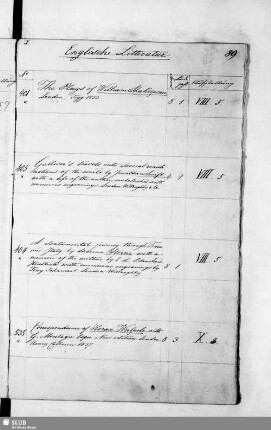 X
Englische Litteratur.
89
401
The Plays of William Shakspeare
London, Tegg 1833.
8 1 VIII. 5
403
Gulliver's travels into several remote
nations of the world by Jonathan Swift
with a life of the author, illustrated with
numerous engravings. London Willoughby & Co
8 1 VIII. 5
404
A Sentimental journey through France
and Italy by Laurence Sterne with a
memoir of the writer by
illustrated with numerous engravings by
Tony Johannot London Willoughby
8 1 VIII. 5
535
Correspondence of Horace Walpole with
G. Montagu Esqu. New edition London
Henry Colburn 1837
8 3 X. 3
SLUB